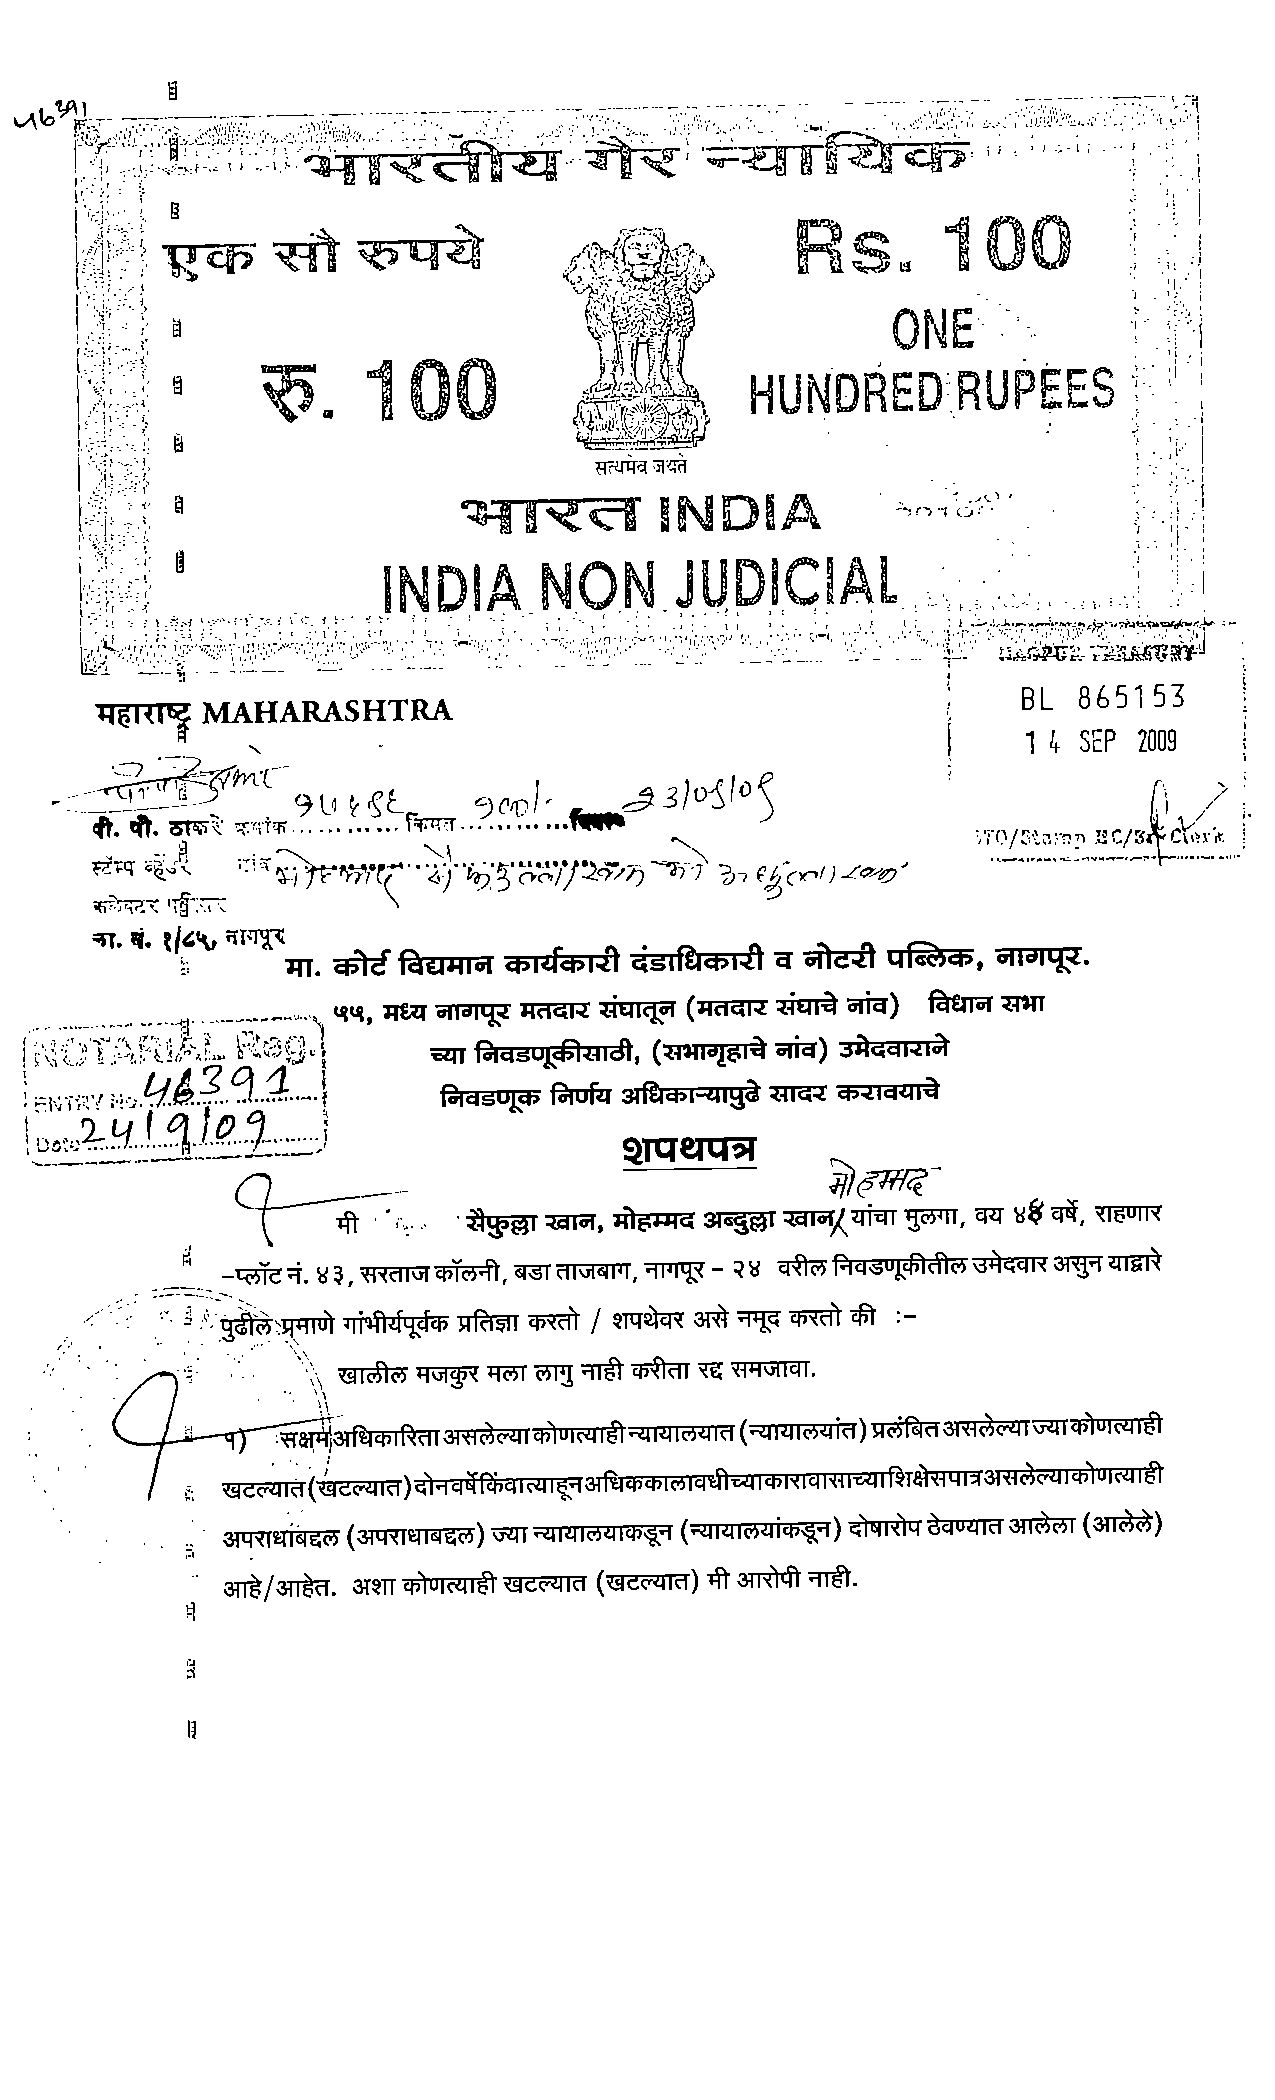 46391
भारतीय गैर न्यायिक
एक सौ रुपये
Rs. 100
रु. 100
ONE
HUNDRED RUPEES
सत्यमेव जयते
भारत INDIA
INDIA NON JUDICIAL
महाराष्ट्र MAHARASHTRA
NAGPUR TREASURY
BL 865153
14 SEP 2009
STO/Stamp HC/Sr. Clerk
पी. पी. ठाकरे क्रमांक किंमत १००/- २३/०९/०९
स्टॅम्प व्हेंडर नांव
कलेक्टर परिसर
ला. नं. १/८५, नागपूर
मा. कोर्ट विद्यमान कार्यकारी दंडाधिकारी व नोटरी पब्लिक, नागपूर.
५५, मध्य नागपूर मतदार संघातून (मतदार संघाचे नांव) विधान सभा
च्या निवडणूकीसाठी, (सभागृहाचे नांव) उमेदवाराने
निवडणूक निर्णय अधिकाऱ्यापुढे सादर करावयाचे
NOTARIAL Reg.
ENTRY No. 46391
Date 24/9/09
शपथपत्र
मोहम्मद
मी सैफुल्ला खान, मोहम्मद अब्दुल्ला खान यांचा मुलगा, वय ४४ वर्षे, राहणार
-प्लॉट नं. ४३, सरताज कॉलनी, बडा ताजबाग, नागपूर - २४ वरील निवडणूकीतील उमेदवार असुन याद्वारे
पुढील प्रमाणे गांभीर्यपूर्वक प्रतिज्ञा करतो / शपथेवर असे नमूद करतो की :-
खालील मजकुर मला लागु नाही करीता रद्द समजावा.
१) सक्षम अधिकारिता असलेल्या कोणत्याही न्यायालयात (न्यायालयांत) प्रलंबित असलेल्या ज्या कोणत्याही
खटल्यात (खटल्यात) दोन वर्षे किंवा त्याहून अधिक कालावधीच्या कारावासाच्या शिक्षेस पात्र असलेल्या कोणत्याही
अपराधांबद्दल (अपराधाबद्दल) ज्या न्यायालयाकडून (न्यायालयांकडून) दोषारोप ठेवण्यात आलेला (आलेले)
आहे/आहेत. अशा कोणत्याही खटल्यात (खटल्यात) मी आरोपी नाही.